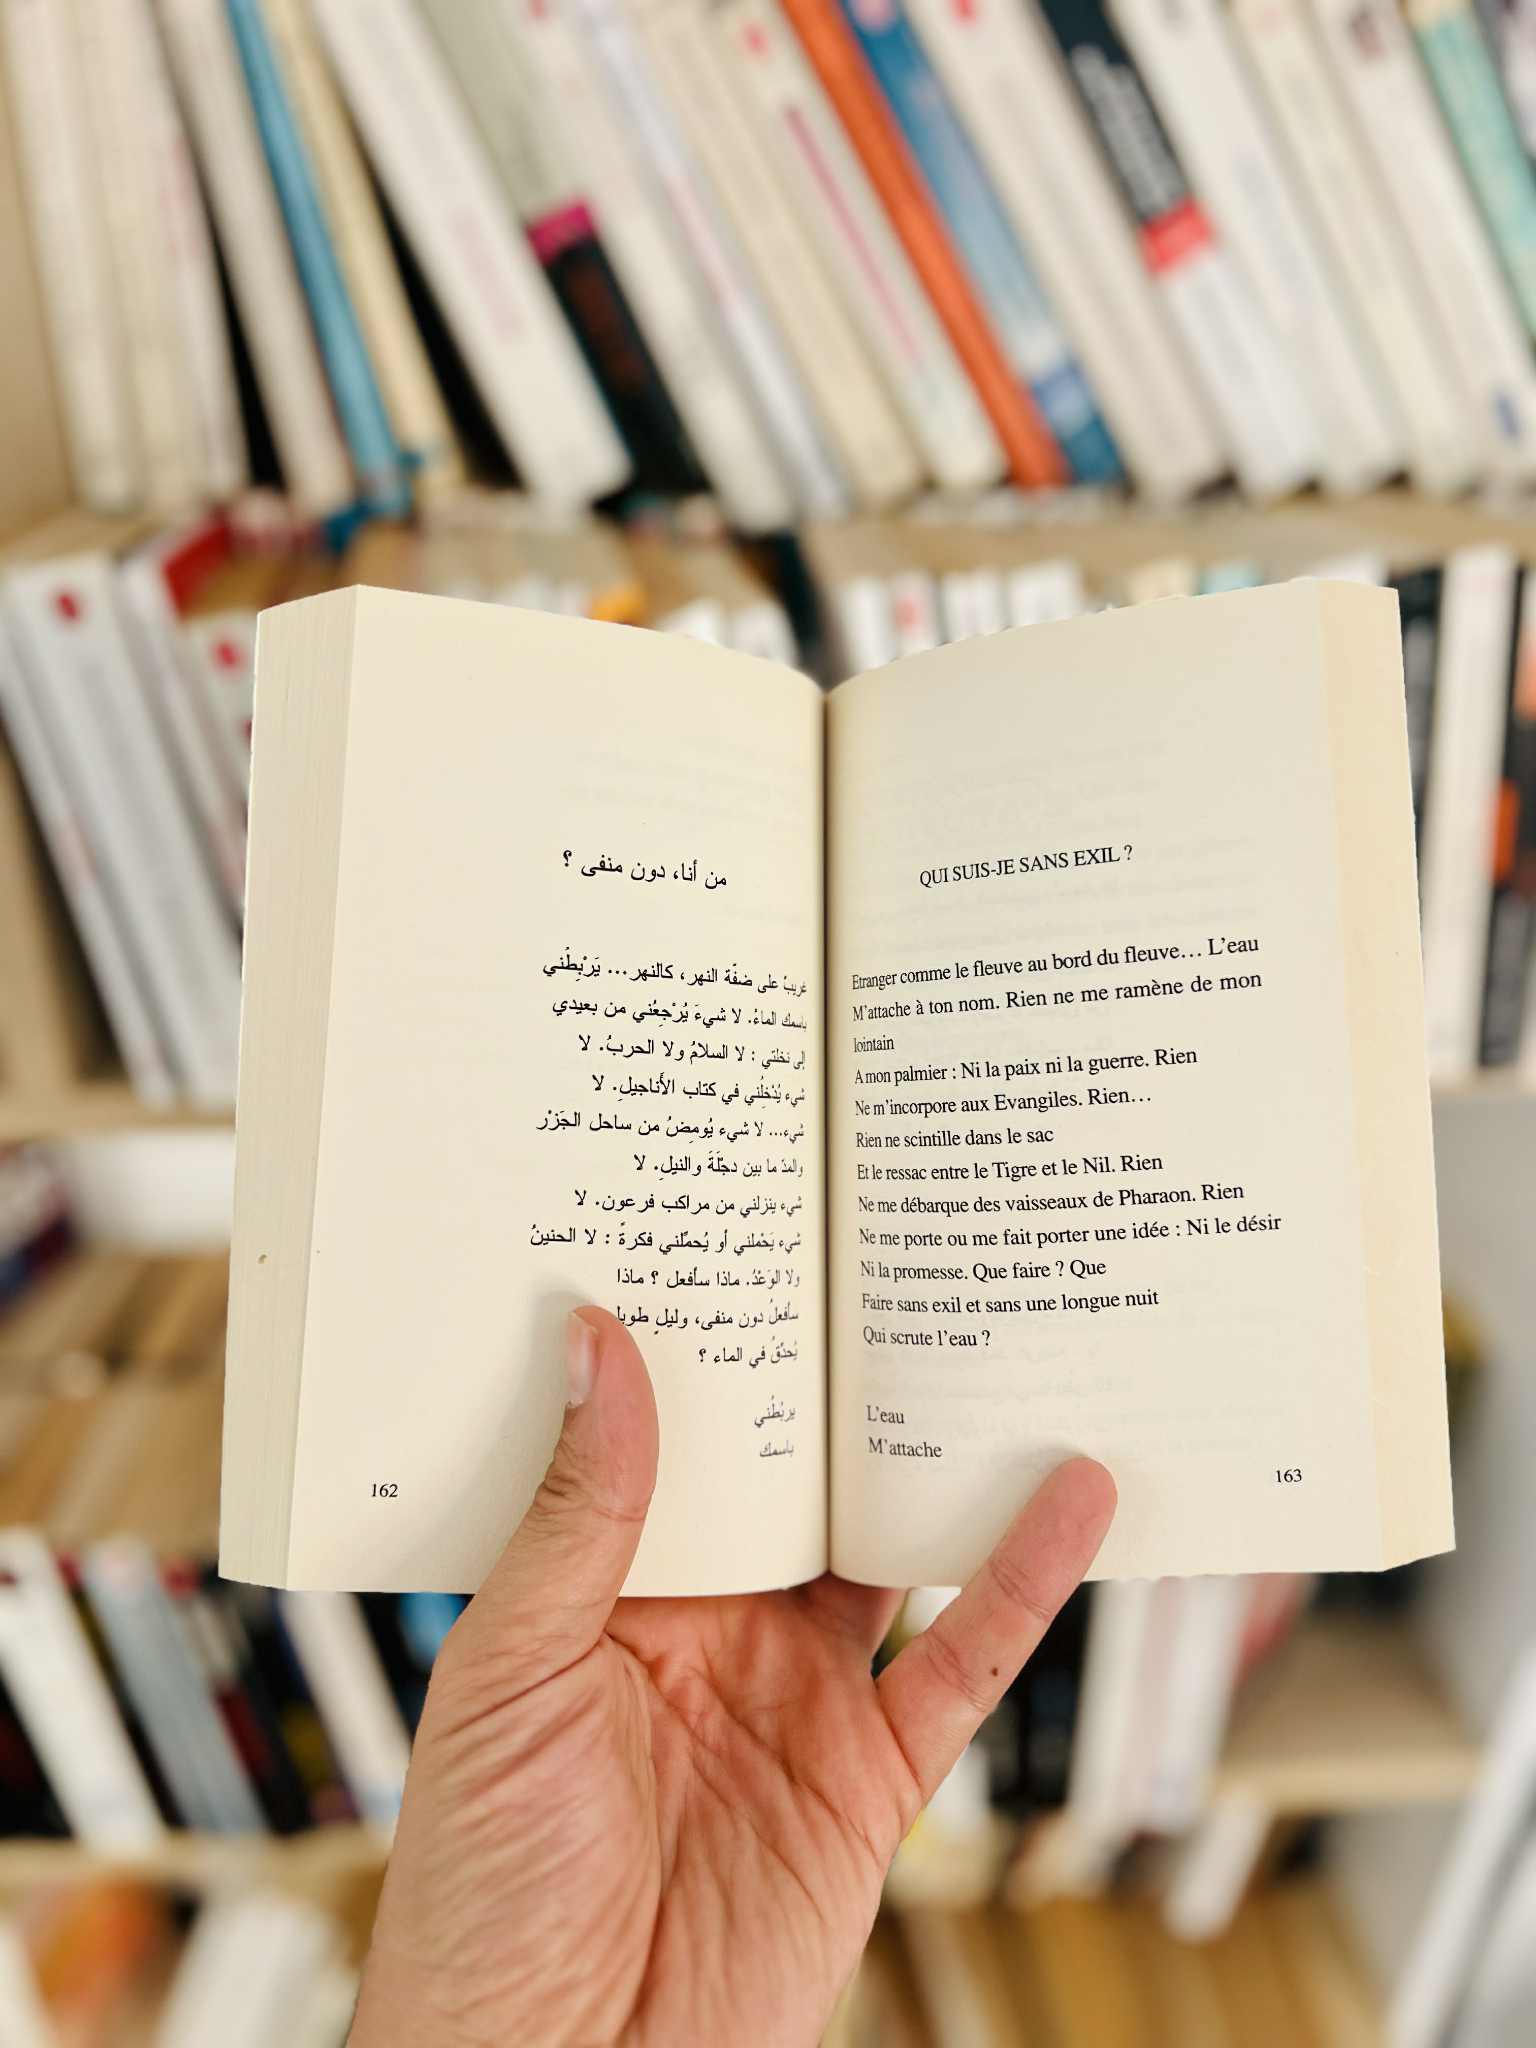 من أنا، دون منفى ؟
غريبٌ على ضفّة النهر، كالنهر... يَرْبِطُني
باسمك الماءُ. لا شيءَ يُرْجِعُني من بعيدي
إلى نخلتي : لا السلامُ ولا الحربُ. لا
شيء يُدْخِلُني في كتاب الأَناجيلِ. لا
شيء... لا شيء يُومِضُ من ساحل الجَزْر
والمدّ ما بين دجْلَةَ والنيلِ. لا
شيء ينزلني من مراكب فرعون. لا
شيء يَحْملني أو يُحمِّلني فكرةً : لا الحنينُ
ولا الوَعْدُ. ماذا سأفعل ؟ ماذا
سأفعلُ دون منفى، وليلٍ
يُحدِّقُ في الماء ؟
يربُطُني
باسمك
162
QUI SUIS-JE SANS EXIL ?
Etranger comme le fleuve au bord du fleuve… L’eau
M’attache à ton nom. Rien ne me ramène de mon
lointain
A mon palmier : Ni la paix ni la guerre. Rien
Ne m’incorpore aux Evangiles. Rien…
Rien ne scintille dans le sac
Et le ressac entre le Tigre et le Nil. Rien
Ne me débarque des vaisseaux de Pharaon. Rien
Ne me porte ou me fait porter une idée : Ni le désir
Ni la promesse. Que faire ? Que
Faire sans exil et sans une longue nuit
Qui scrute l’eau ?
L’eau
M’attache
163